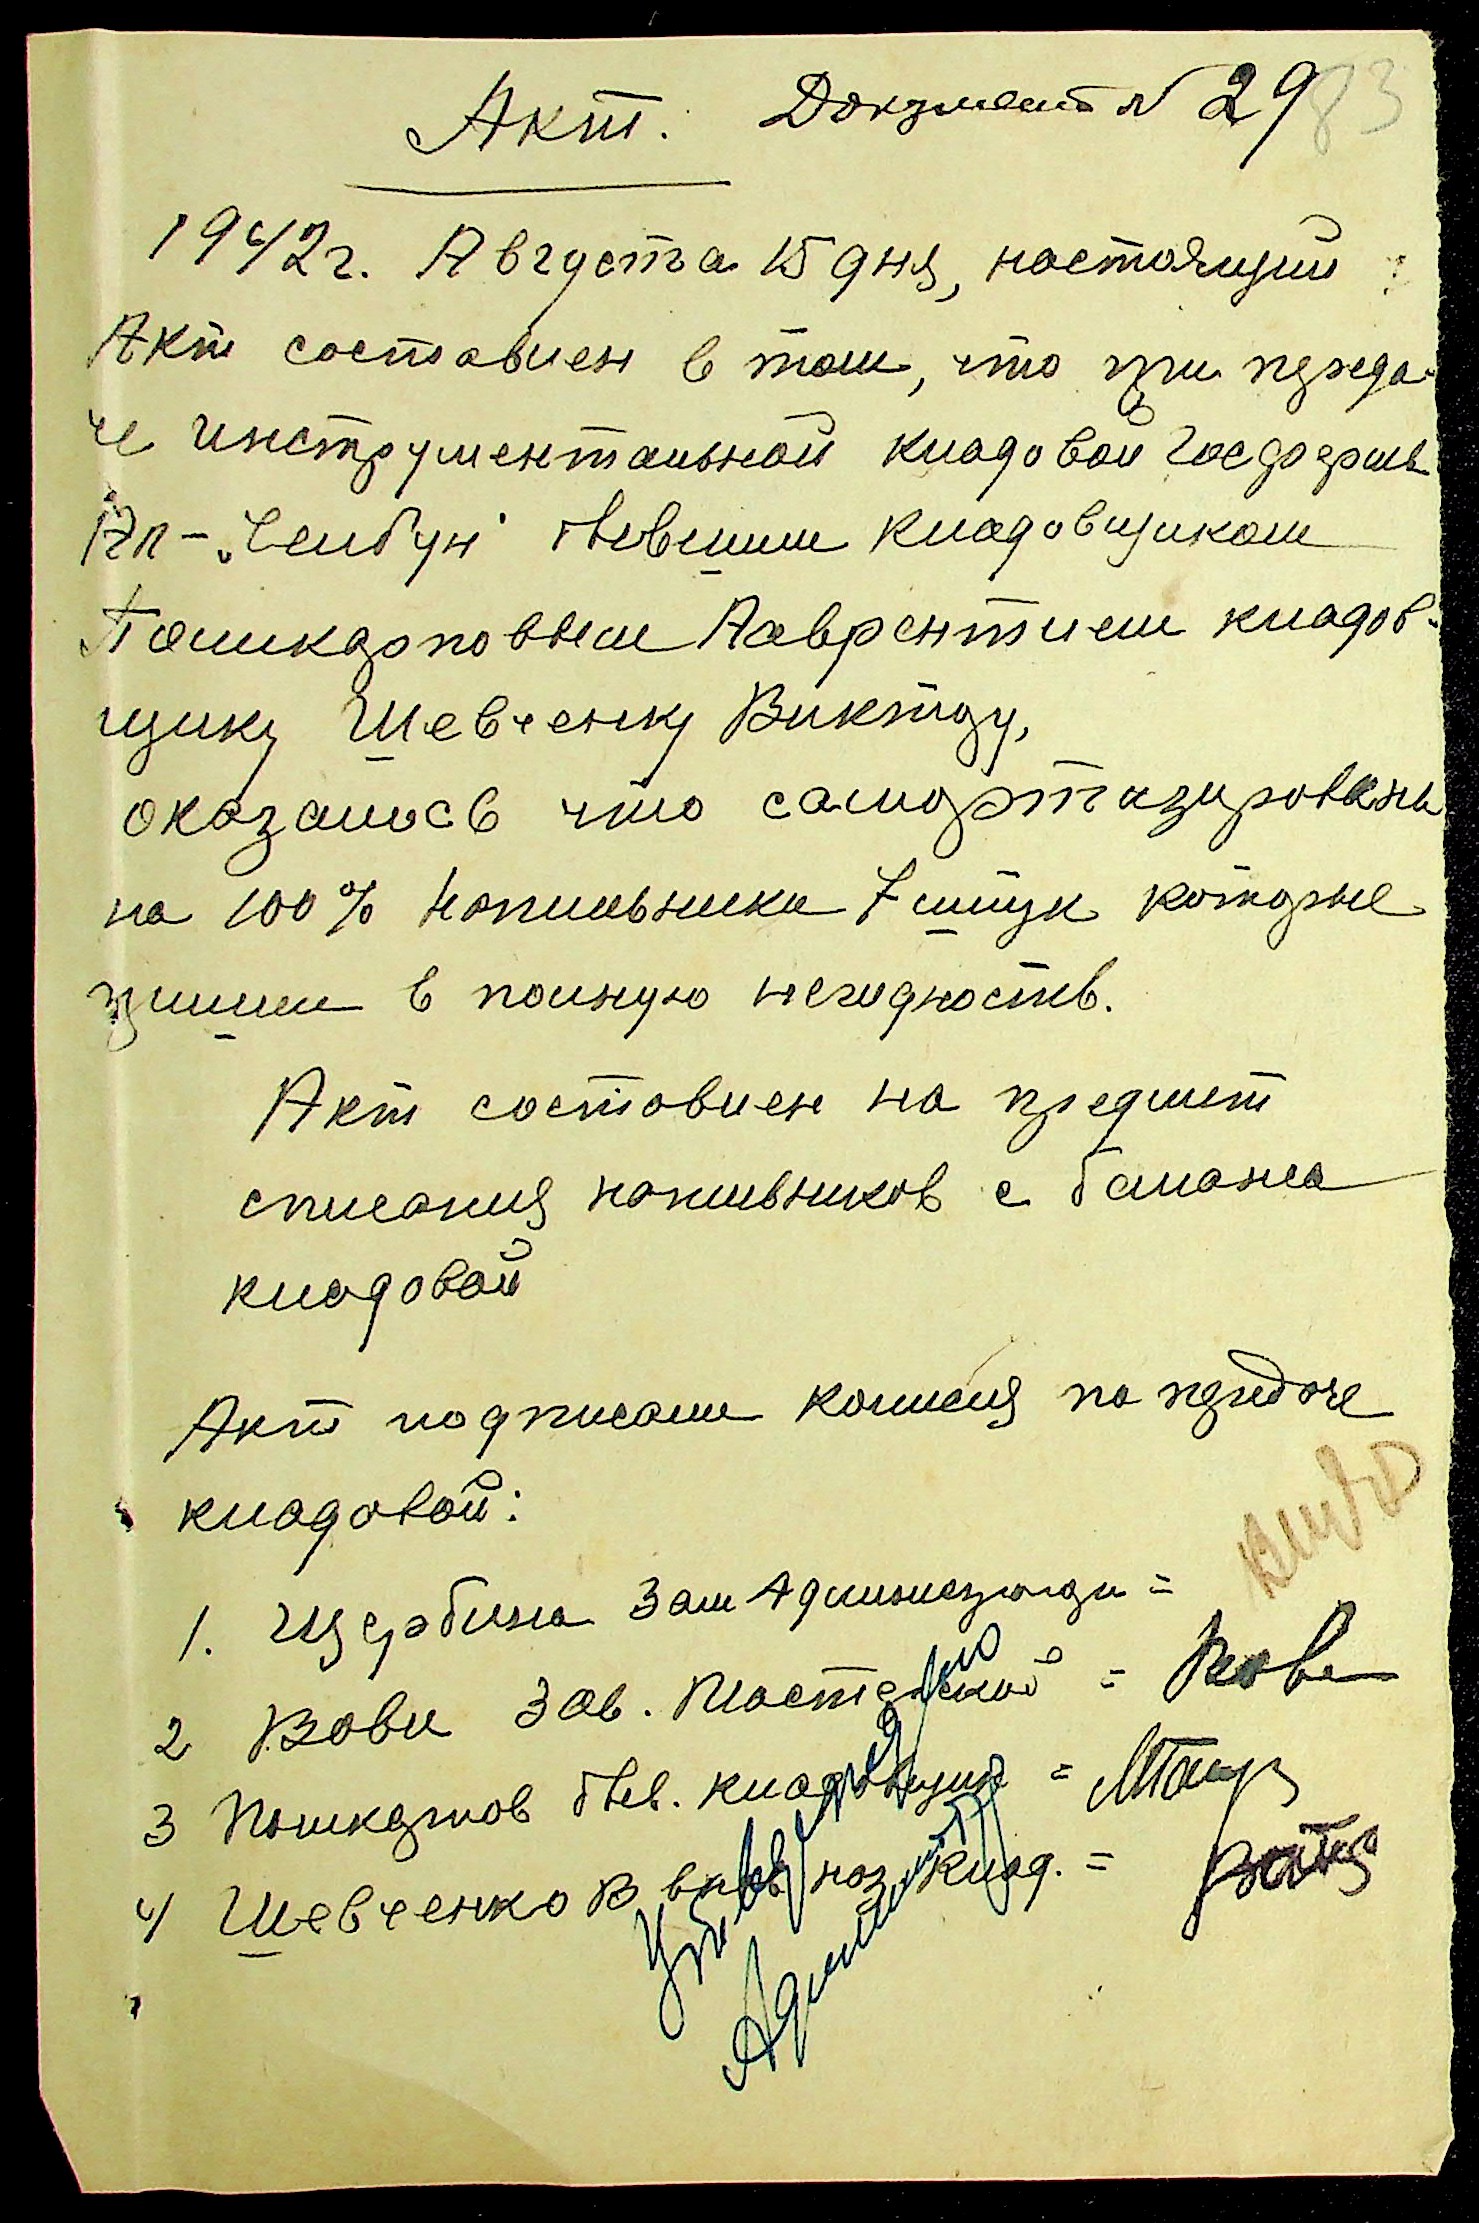 Акт. Документ № 29
83
1942 г. Августа 15 дня, настоящий
Акт составлен в том, что при переда-
че инструментальной кладовой Госдоерм
бывшим кладовщиком
Пошкарповым Лаврентием кладов-
щику Шевченку Виктору,
оказалось что самортизированы
на 100% напильники 7 штук которые
пришли в полную негодность.
Акт составлен на предмет
списания напильников с баланса
кладовой
Акт подписали комисия по передаче
кладовой:
1. Щербина Зам Администратора =
2 Вовк Зав. Мастерской = Вовк
3 Пошкарпов быв. кладовщик =
4 Шевченко В вновь наз. клад. =
Утверждаю